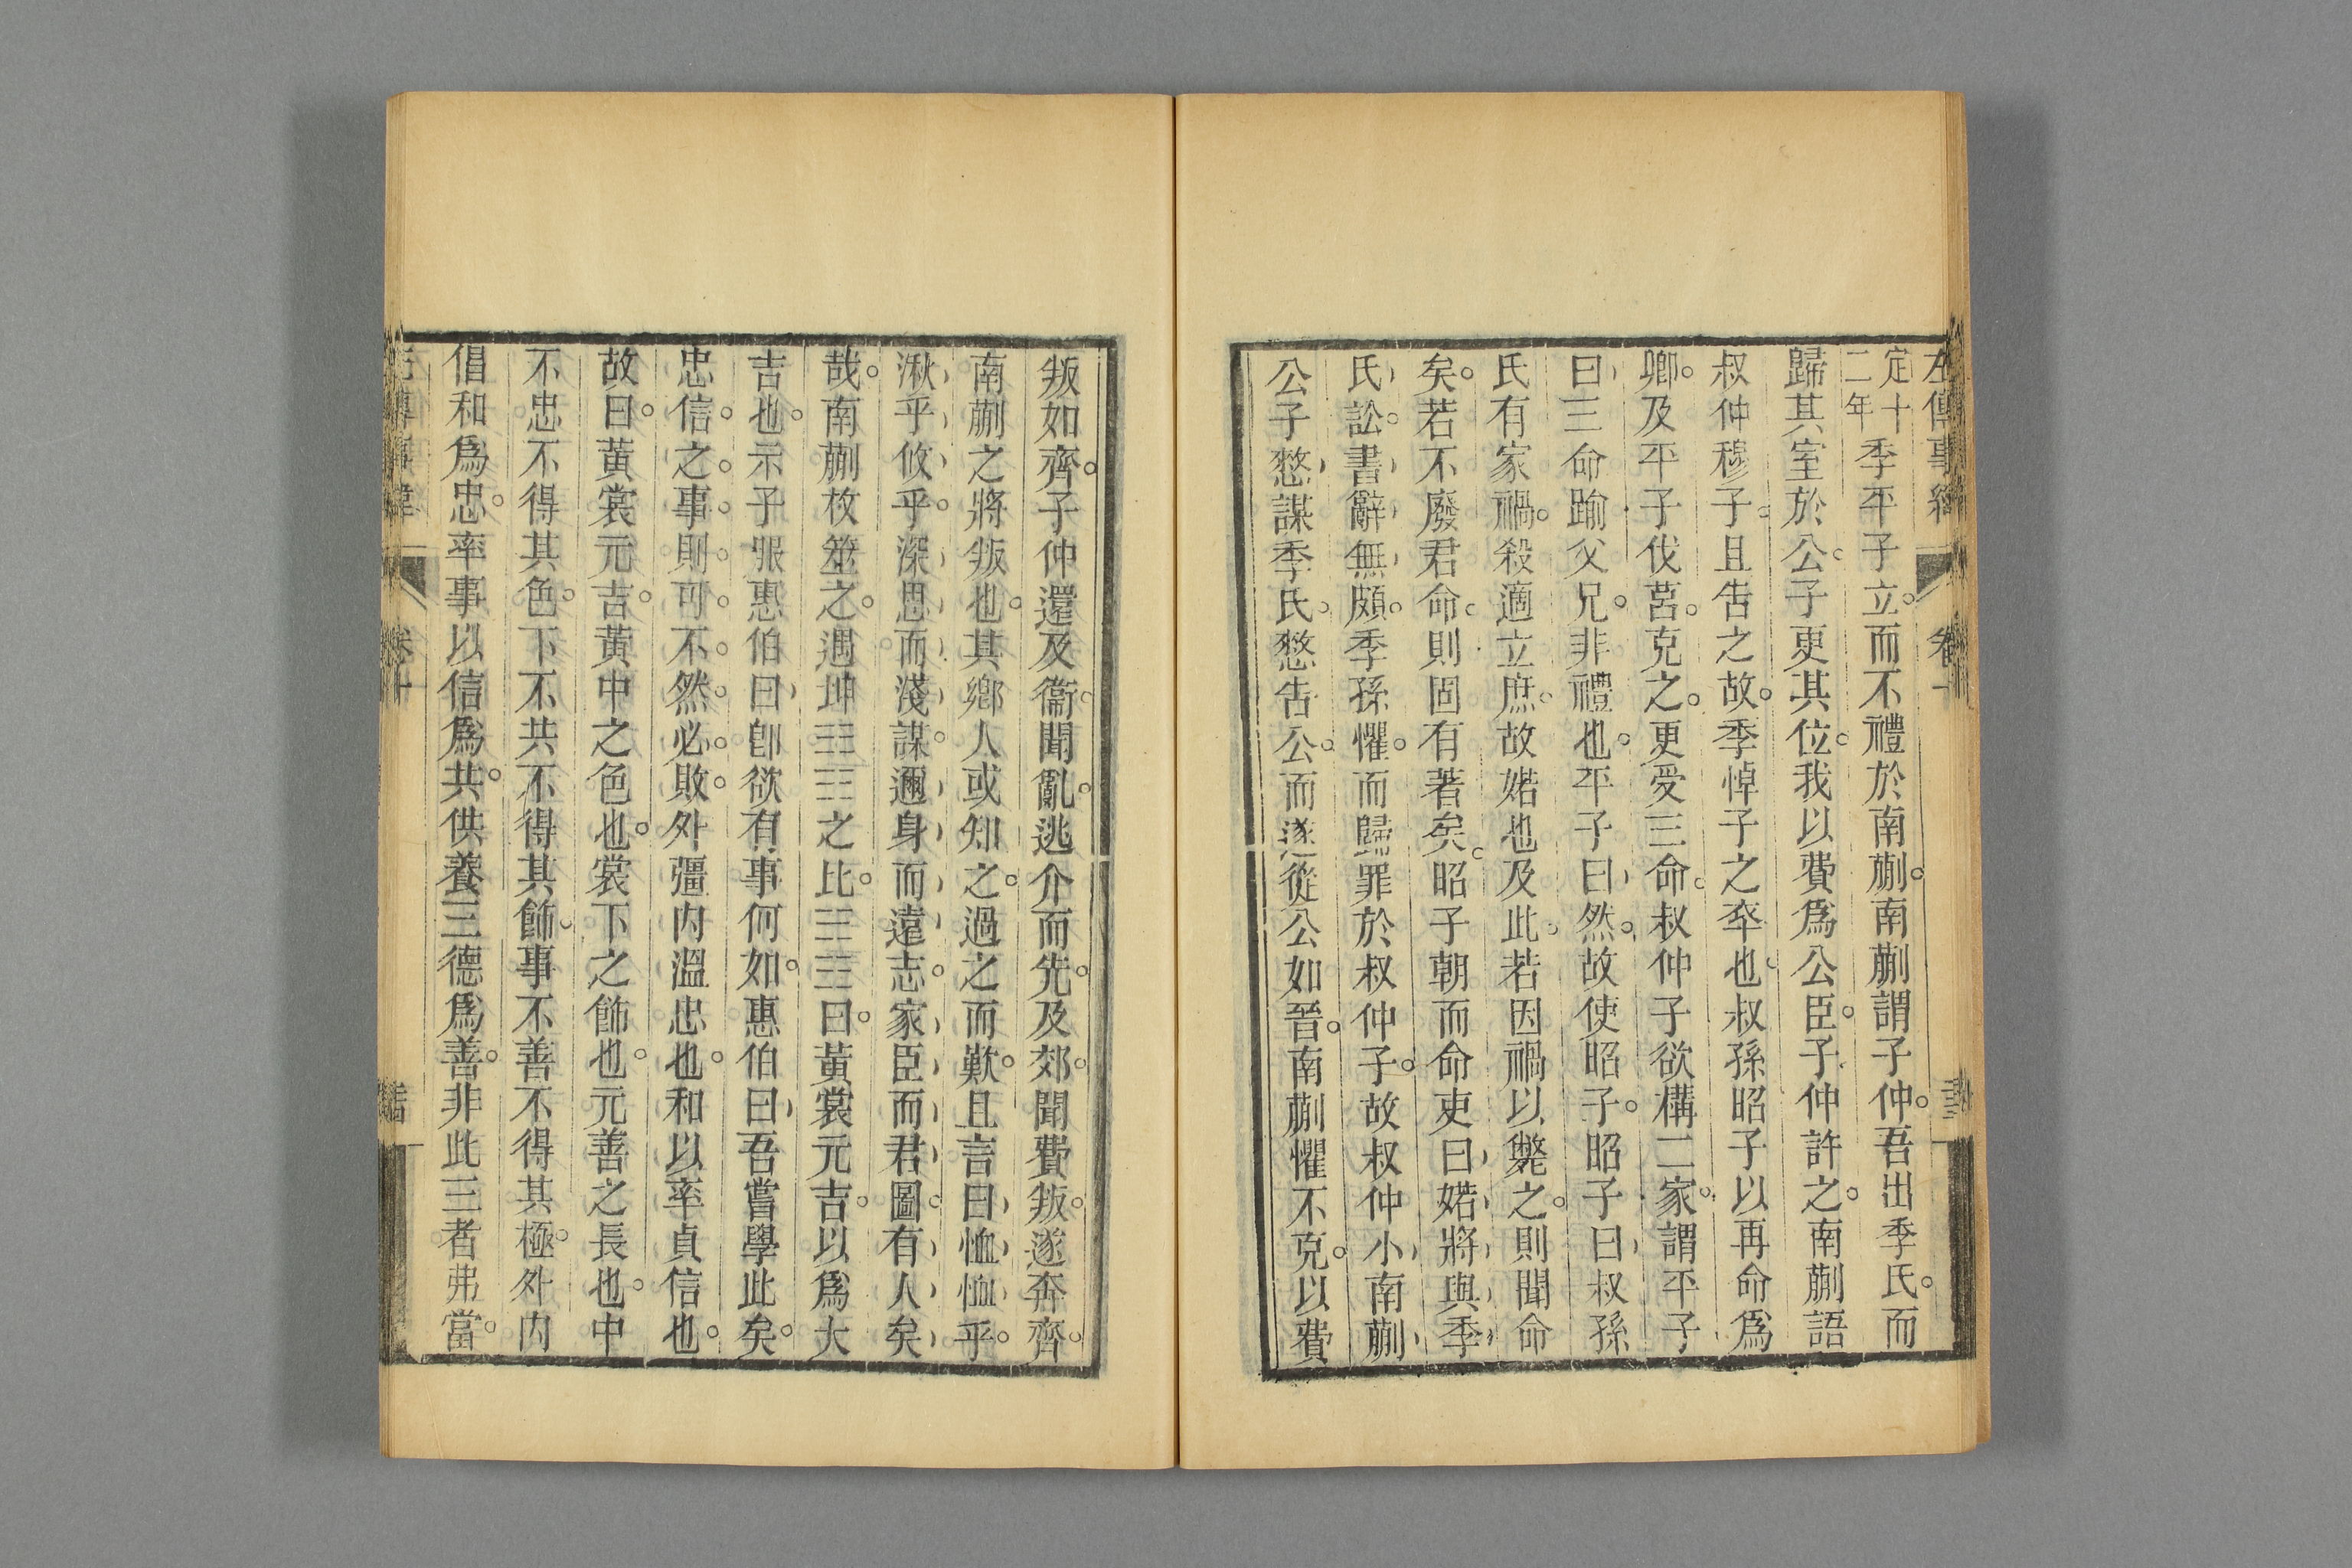 左傳事緯 卷十
定十二年季平子立而不禮於南蒯南蒯謂子仲吾出季氏而
歸其室於公子更其位我以費爲公臣子仲許之南蒯語
叔仲穆子且告之故季悼子之卒也叔孫昭子以再命爲
卿及平子伐莒克之更受三命叔仲子欲構二家謂平子
曰三命踰父兄非禮也平子曰然故使昭子昭子曰叔孫
氏有家禍殺適立庶故婼也及此若因禍以斃之則聞命
矣若不廢君命則固有著矣昭子朝而命吏曰婼將與季
氏訟書辭無頗季孫懼而歸罪於叔仲子故叔仲小南蒯
公子憖謀季氏憖告公而遂從公如晉南蒯懼不克以費
叛如齊子仲還及衞聞亂逃介而先及郊聞費叛遂奔齊
南蒯之將叛也其鄉人或知之過之而歎且言曰恤恤乎
湫乎攸乎深思而淺謀邇身而遠志家臣而君圖有人矣
哉南蒯枚筮之遇坤☷☷之比☵☷曰黃裳元吉以爲大
吉也示子服惠伯曰卽欲有事何如惠伯曰吾嘗學此矣
忠信之事則可不然必敗外彊內溫忠也和以率貞信也
故曰黃裳元吉黃中之色也裳下之飾也元善之長也中
不忠不得其色下不共不得其飾事不善不得其極外內
倡和爲忠率事以信爲共供養三德爲善非此三者弗當
左傳事緯 卷十